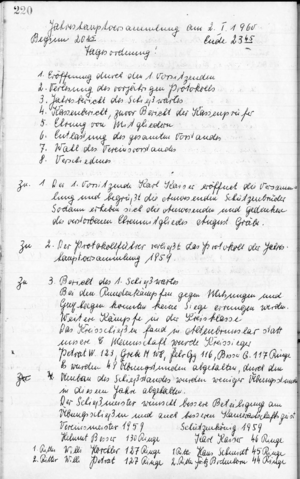 220
Jahreshauptversammlung am 2. I. 1960
Beginn 20 Ende 23
Tagesordnung!
1. Eröffnung durch den 1. Vorsitzenden
2. Verlesung des vorjährigen Protokolls
3. Jahresbericht des Schießwartes
4. Kassenbericht, zuvor Bericht der Kassenprüfer
5. Ehrung von Mitgliedern
6. Entlassung des gesamten Vorstandes
7. Wahl des Vereinsvorstandes
8. Verschiedenes
Zu 1. Der 1. Vorsitzende Karl Kaiser eröffnet die Versamm-
lung und begrüßt die anwesenden Schützenbrüder
Sodann erheben sich die Anwesenden und gedenken
des verstorbenen Ehrenmitgliedes August Gräbe.
Zu 2. Der Protokollführer verliest das Protokoll der Jahres-
hauptversammlung 1959.
Zu 3. Bericht des 1. Schießwartes
Bei den Rundenkämpfen gegen und
konnten keine Siege errungen werden.
Weitere Kämpfe in der Kreisklasse.
Das Kreisschießen fand in Altenbromslar statt
unsere Mannschaft wurde Kreissieger
W. 123, H 118, 116, 117 Ringe
Es wurden 41 Übungsstunden abgehalten, durch den
Neubau des Schießstandes wurden weniger Übungsstunden
in diesem Jahre abgehalten.
Der Schießmeister wünscht bessere Beteiligung am
Übungsschießen und auch besseren
Vereinsmeister 1959 Schützenkönig 1959
Helmut Besse 130 Ringe Karl Kaiser 46 Ringe
1. Ritter Willi 127 Ringe 1. Ritter Hans Schmidt 45 Ringe
2. Ritter Willi 127 Ringe 2. Ritter Fritz 44 Ringe